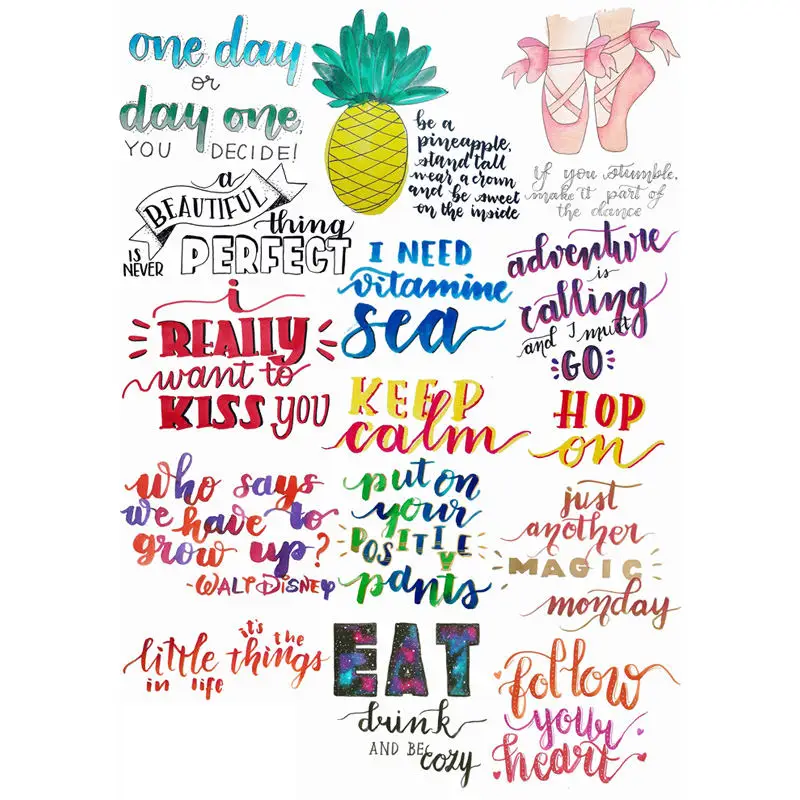 one day
or
day one,
YOU DECIDE!
be a
pineapple,
stand tall
wear a crown
and be sweet
on the inside
if you stumble,
make it part of
the dance
a
BEAUTIFUL
thing
IS
NEVER
PERFECT
I NEED
vitamine
sea
adventure
is
calling
and I must
GO
i
REALLY
want to
KISS YOU
KEEP
calm
HOP
on
who says
we have to
grow up?
-WALT DISNEY
put on
your
POSITIVE
pants
just
another
MAGIC
monday
it's the
little things
in life
EAT
drink
AND BE
cozy
follow
your
heart